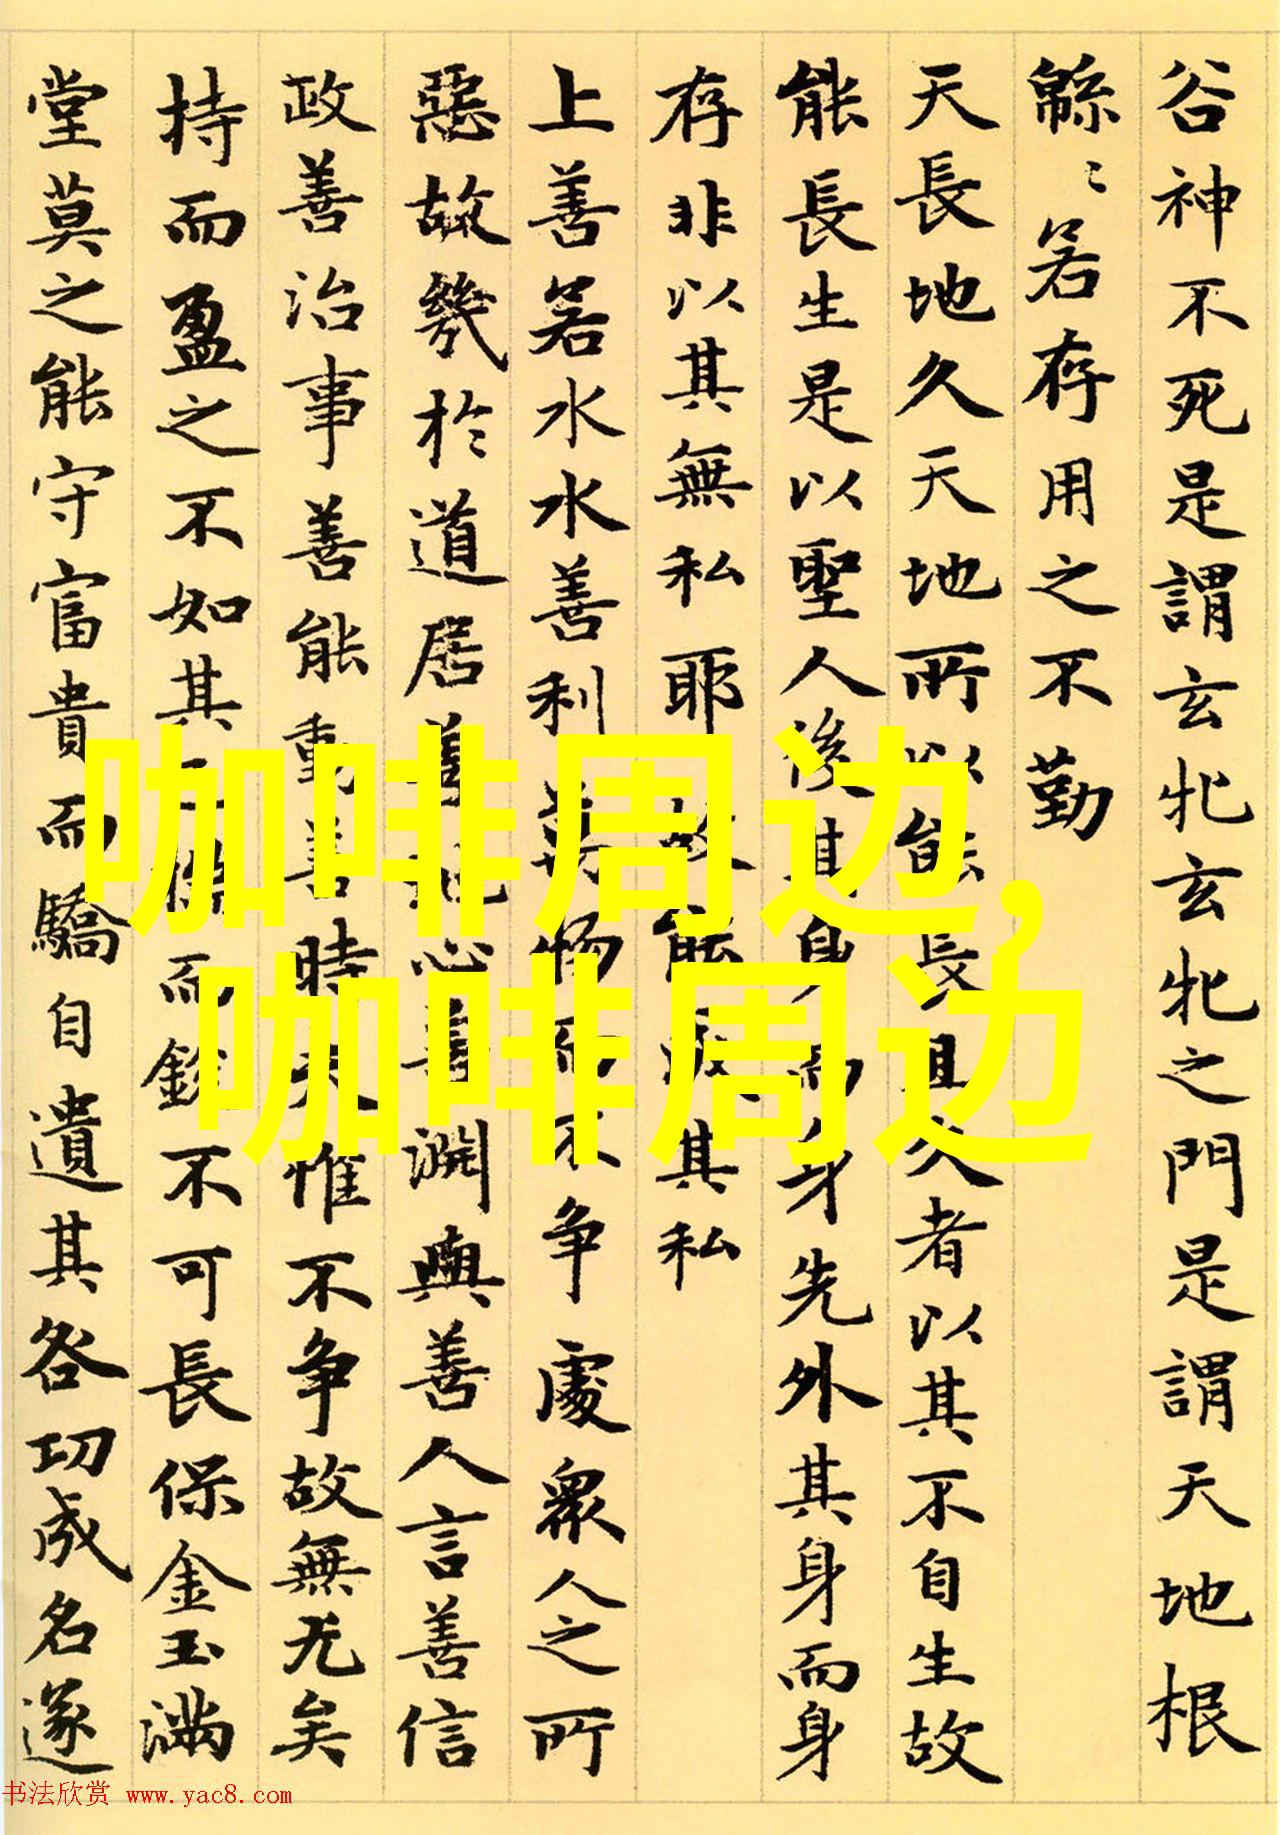 谷神不死是謂玄牝玄牝之門是謂天地根
緜〻若存用之不勤
天長地久天地所以能長且久者以其不自生故
能長生是以聖人後其身而身先外其身而身
存非以其無私耶故能成其私
上善若水水善利萬物而不争處衆人之所
惡故幾於道居善地心善淵與善人言善信
政善治事善能動善時夫惟不争故無尤矣
持而盈之不如其而鋭不可長保金玉滿
堂莫之能守富貴而驕自遺其咎功成名遂
咖啡周边,
咖啡周边
书法欣赏 www.yac8.com